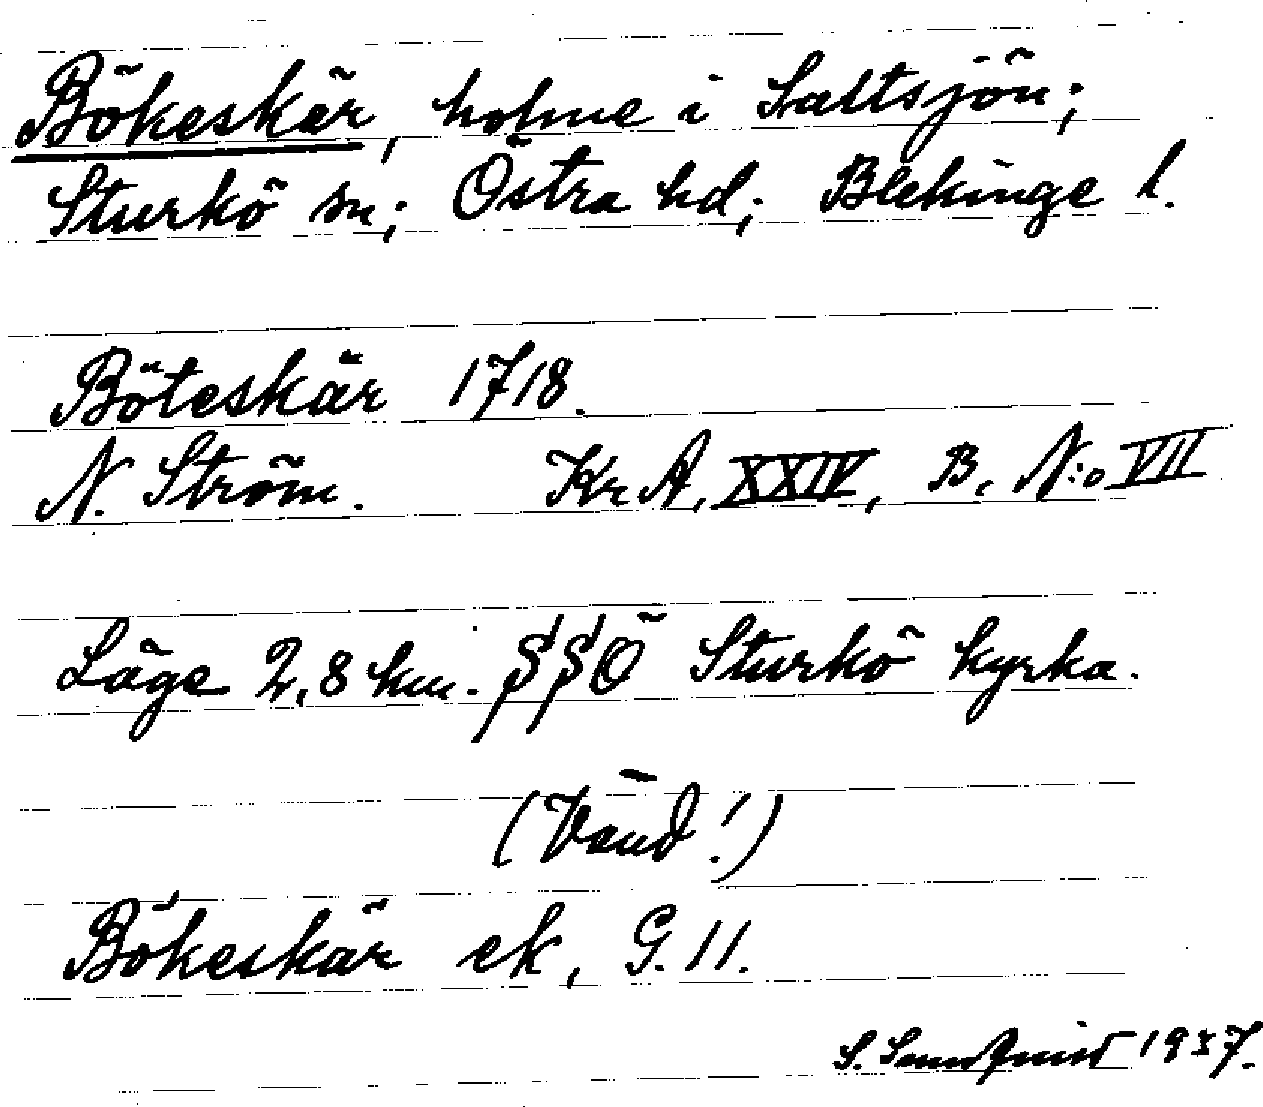 Bökeskär, holme i Saltsjön;
Sturkö sn; Östra hd; Blekinge l.
Böteskär 1718.
N. Ström. KrA, XXIV, B, N:o VII
Läge 2,8 km. SSÖ Sturkö kyrka.
(Vänd!)
Bökeskär ek, G. 11.
S. Sandqvist 1937.